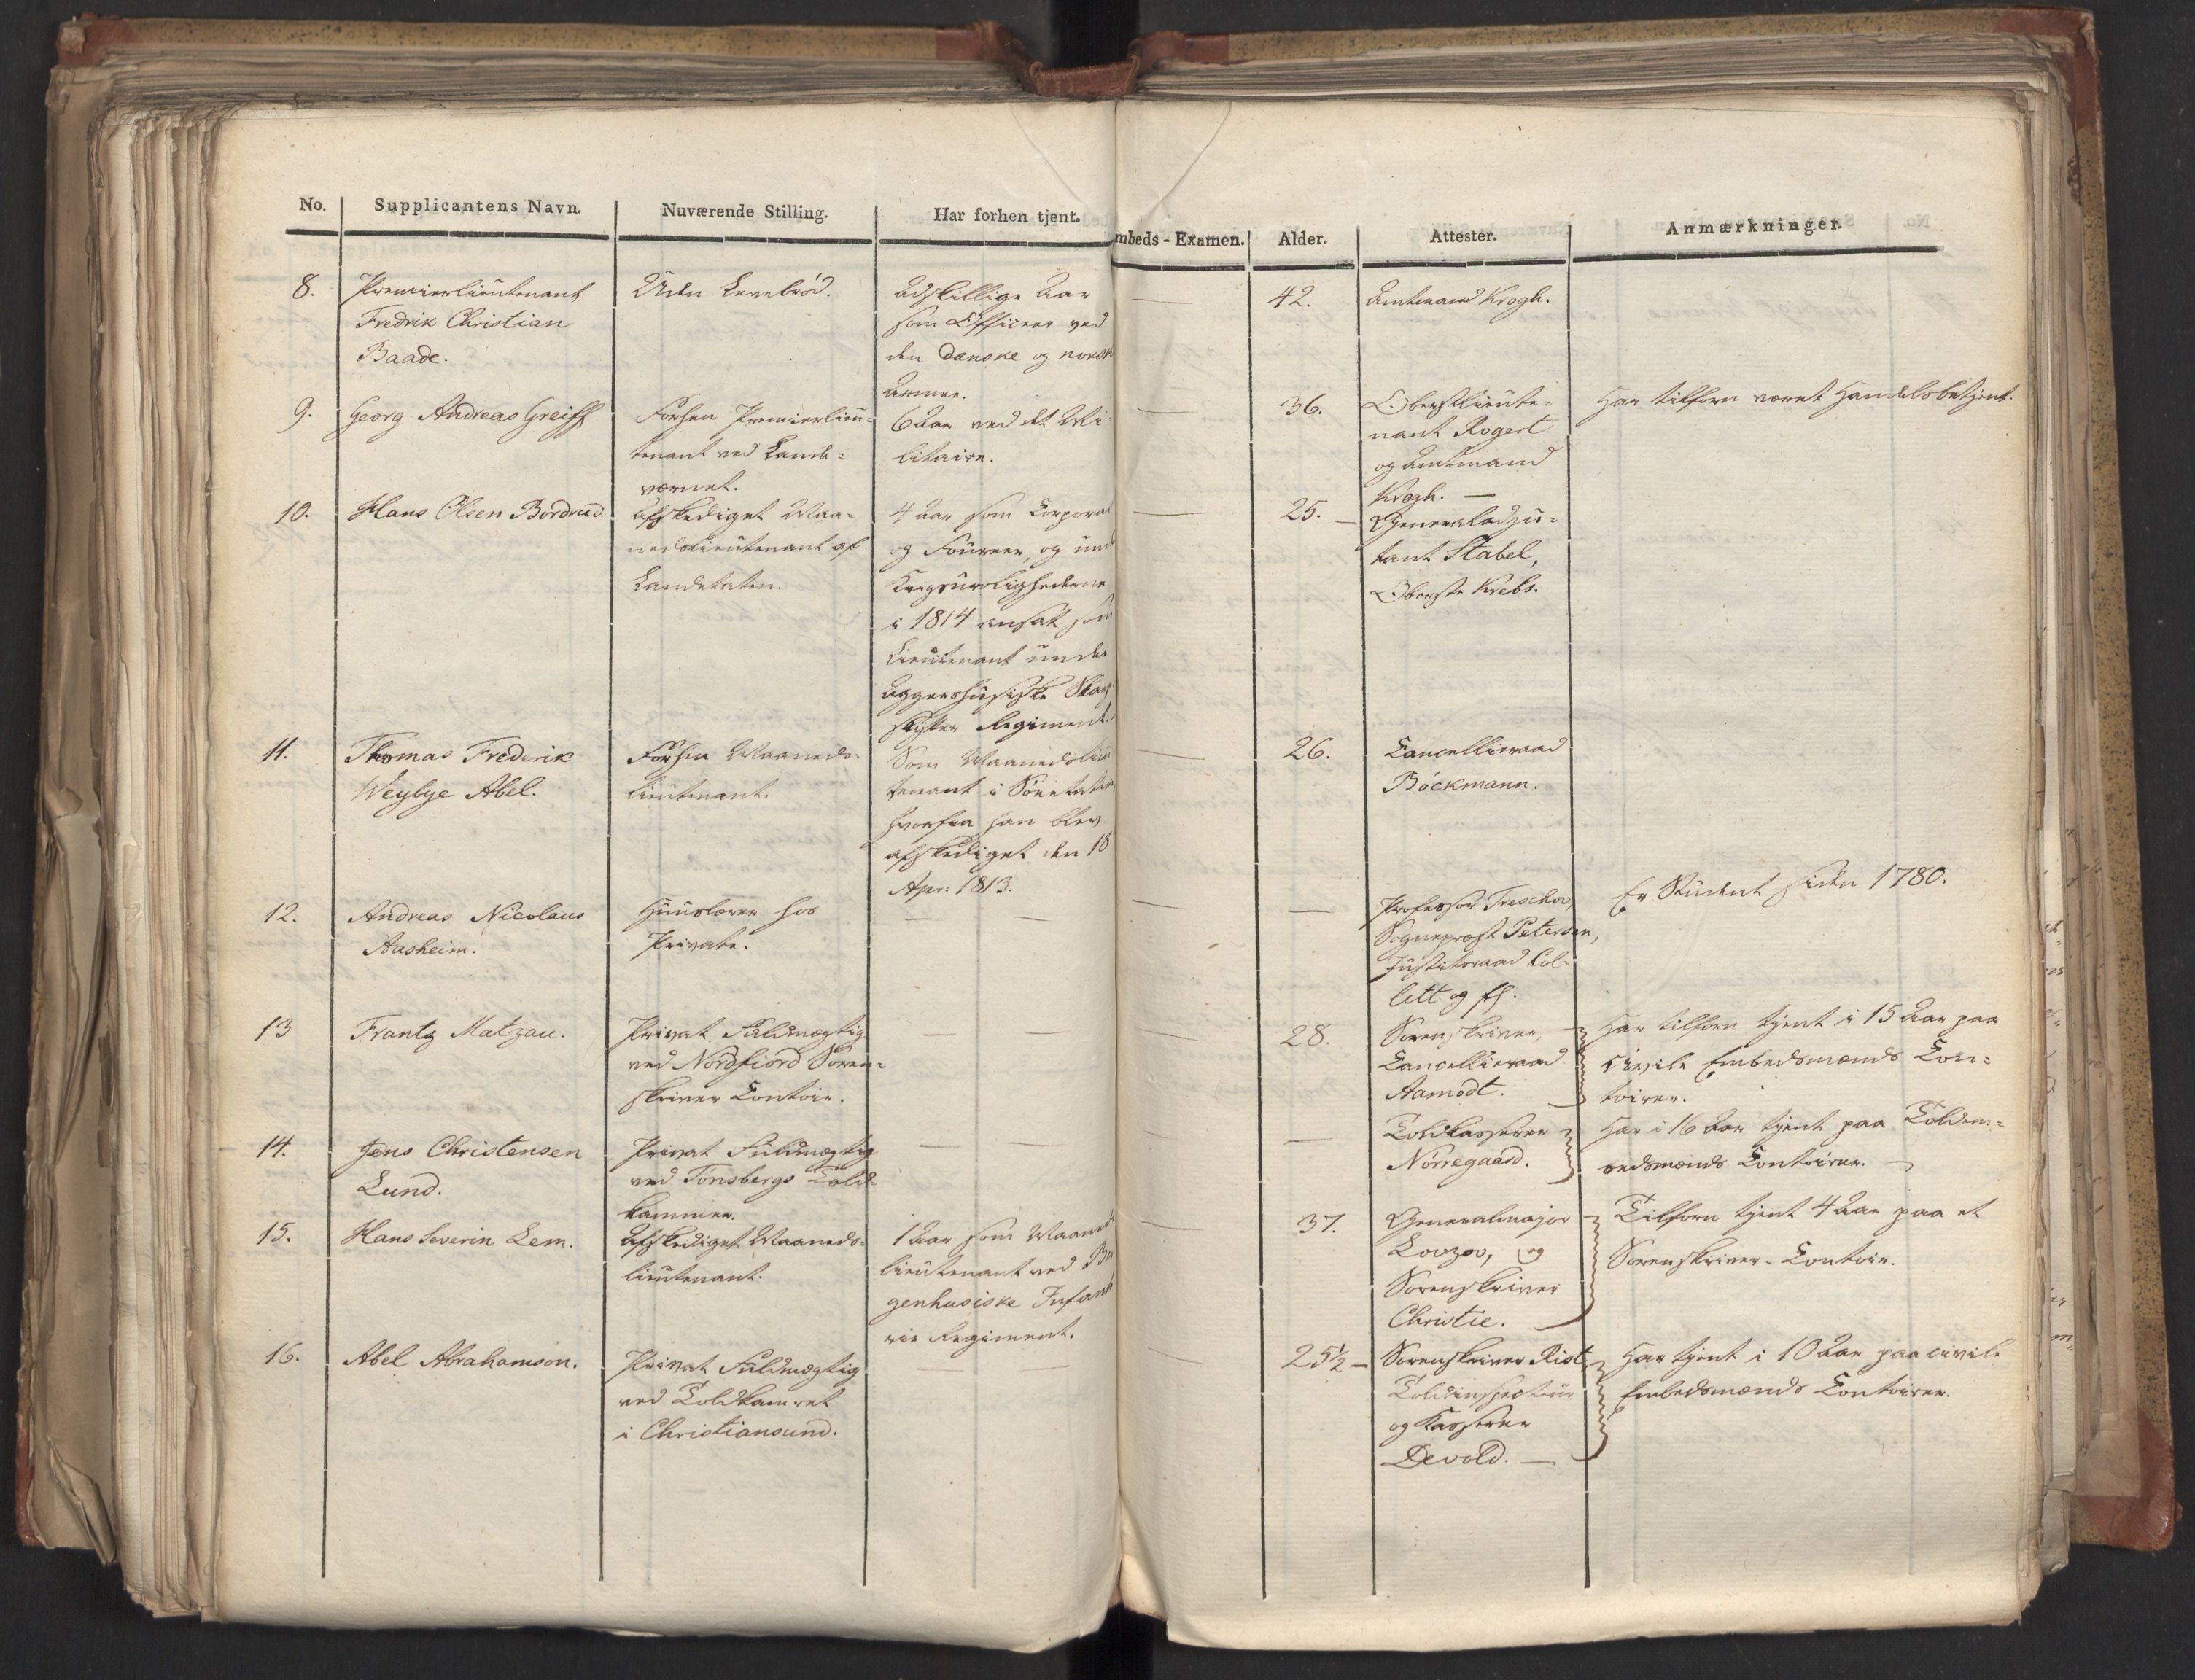 No. Supplicantens Navn. Nuværende Stilling. Har forhen tjent. mbeds-Examen. Alder. Attester. Anmærkninger.
8.
Premierlieutenant
Fredrik Christian
Baade.
Uden Levebrød.
adskillige Aar
som Officeer ved
den danske og norsk
Armee.
—
42.
Amtmand Krogh.
9.
Georg Andreas Greiff
Forhen Premierlieu-
tenant ved Lande-
værnet.
6 Aar ved det Mi-
litaire.
—
36.
Oberstlieute-
nant Rogert
og Amtmand
Krogh. —
Har tilforn været Handelsbetjent.
10.
Hans Olsen Bordrud.
Afskediget Maa-
nedslieutenant af
Landetaten.
4 Aar som Corporal
og Foureer, og und
Krigsurolighederne
i 1814 ansat som
Lieutenant under
Aggershusiske Skarp-
skytter Regiment.
—
25. —
Generaladju-
tant Stabel,
Oberste Krebs.
11.
Thomas Frederik
Weybye Abel.
Forhen Maaneds-
lieutenant.
Som Maanedslieu
tenant i Søeetaten
hvorfra han blev
afskediget den 18
Apr: 1813.
—
26.
Cancellieraad
Böckmann.
12.
Andreas Nicolaus
Aasheim.
Huuslærer hos
Private.
— —
—
—
Professor Treschow,
Sognepræst Petersen,
Justitsraad Col-
lett og fl.
Er Student siden 1780.
13
Frantz Matzau.
Privat Fuldmægtig
ved Nordfiord Soren-
skriver Contoir.
— —
—
28.
Sorenskriver,
Cancellieraad
Aamodt.
Har tilforn tjent i 15 Aar paa
civile Embedsmænds Con-
toirer.
14.
Jens Christensen
Lund.
Privat Fuldmægtig
ved Tonsbergs Told-
kammer.
— —
—
—
Toldkasserer
Nörregaard.
Har i 16 Aar tjent paa Toldem-
bedsmænds Contoirer. —
15.
Hans Severin Lem.
Afskediget Maaneds-
lieutenant.
1 Aar som Maaneds
lieutenant ved Ber
genhusiske Infant
rie Regiment.
—
37.
Generalmajor
Lowzow, og
Sorenskriver
Christie.
Tilforn tjent 4 Aar paa et
Sorenskriver-Contoir.
16.
Abel Abrahamson.
Privat Fuldmægtig
ved Toldkamret
i Christiansund.
— —
—
25½ —
Sorenskriver Rist,
Toldinspecteur
og Kasserer
Devold. —
Har tjent i 10 Aar paa civile
Embedsmænds Contoirer.